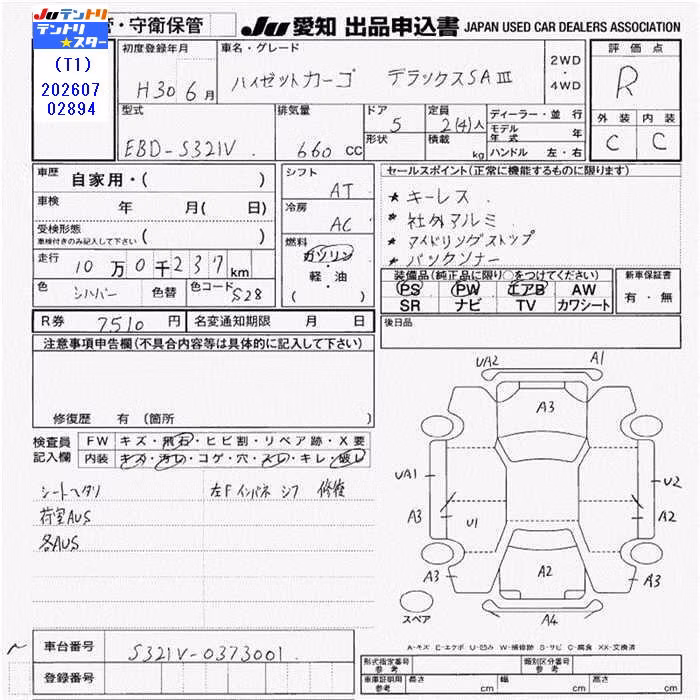 Juテントリ
テントリ★スター
(T1)
202607
02894
・守衛保管
Ju 愛知 出品申込書 JAPAN USED CAR DEALERS ASSOCIATION
初度登録年月
H30 6月
車名・グレード
ハイゼットカーゴ デラックスSAⅢ
2WD
・
4WD
評価点
R
外装 内装
C C
型式
EBD-S321V
排気量
660 CC
ドア
5
形状
定員
2(4)人
積載
kg
ディーラー・並行
モデル年式 年
ハンドル 左・右
車歴 自家用・( )
車検 年 月( 日)
受検形態
車検付きのみ記入して下さい ( )
走行 10万0千237km
色 シルバー 色替 色コード S28
シフト
AT
冷房
AC
燃料
ガソリン
軽・油
( )
セールスポイント(正常に機能するものに限ります)
★ キーレス
★ 社外アルミ
★ アイドリングストップ
★ バックソナー
装備品(純正品に限り○をつけてください)
PS PW エアB AW
SR ナビ TV カワシート
新車保証書
有・無
R券 7510円 名変通知期限 月 日
後日品
注意事項申告欄(不具合内容等は具体的に記入して下さい)
修復歴 有 (箇所
検査員記入欄
FW キズ・飛石・ヒビ割・リペア跡・X要
内装 キズ・汚レ・コゲ・穴・スレ・キレ・破レ
シートヘタリ 左Fインパネ シフ 修復
荷室AUS
各AUS
UA2 A1
A3
UA1 U2
A3 U1 A2
A3 A2 A3
スペア
A4
A-キズ E-エクボ U-凹み W-補修跡 S-サビ C-腐食 XX-交換済
車台番号 S321V-0373001
登録番号
形式指定番号 参考
類別区分番号 参考
車庫証明用 参考 長さ cm 幅 cm 高さ cm